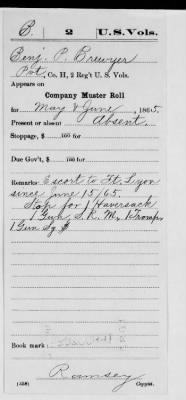 B. 2 U.S. Vols.
Benj. P. Brewyer
Pvt, Co. H, 2 Reg't U. S. Vols.
Appears on
Company Muster Roll
for May & June, 1865.
Present or absent Absent.
Stoppage, $ 100 for
Due Gov't, $ 100 for
Remarks: Escort to Ft. Lyon
since June 15/65.
Stop for 1 Haversack
1 Gun S. R. M., 1 Tromp,
1 Gun Sg $
Book mark:
Ramsey
(358) Copyist.